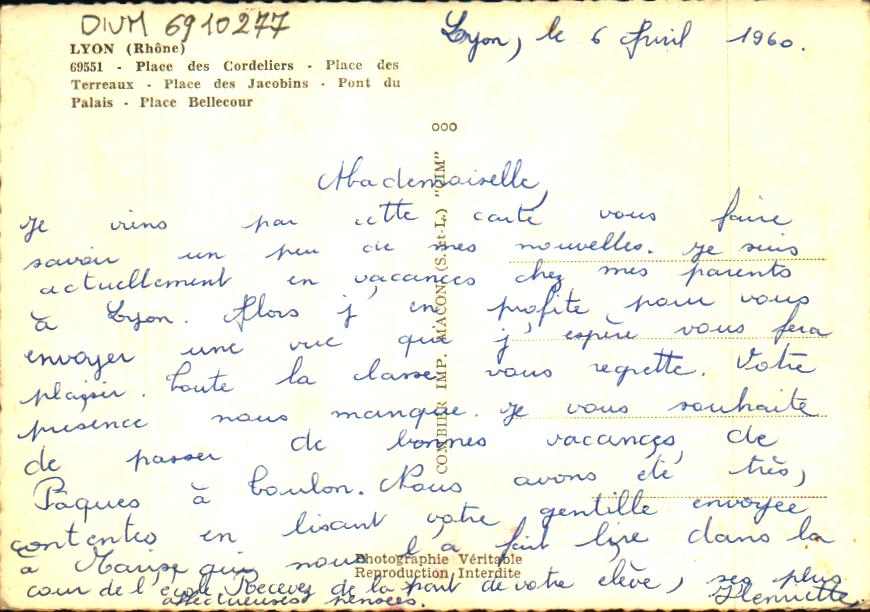 DIVM 6910277
LYON (Rhône)
69551 - Place des Cordeliers - Place des
Terreaux - Place des Jacobins - Pont du
Palais - Place Bellecour
Lyon, le 6 Avril 1960.
ooo
COMBIER IMP. MACON (S.-et-L.) "CIM"
Mademoiselle,
Je viens par cette carte vous faire
savoir un peu de mes nouvelles. Je suis
actuellement en vacances chez mes parents
à Lyon. Alors j'en profite pour vous
envoyer une vue qui j'espère vous fera
plaisir. Toute la classe vous regrette. Votre
présence nous manque. Je vous souhaite
de passer de bonnes vacances, de
Pâques à Toulon. Nous avons été très,
contentes en lisant votre gentille envoyée
à qui nous l'a fait lire dans la
cour de l'école. Recevez de la part de votre élève, ses plus
affectueuses pensées. Henriette.
Photographie Véritable
Reproduction Interdite